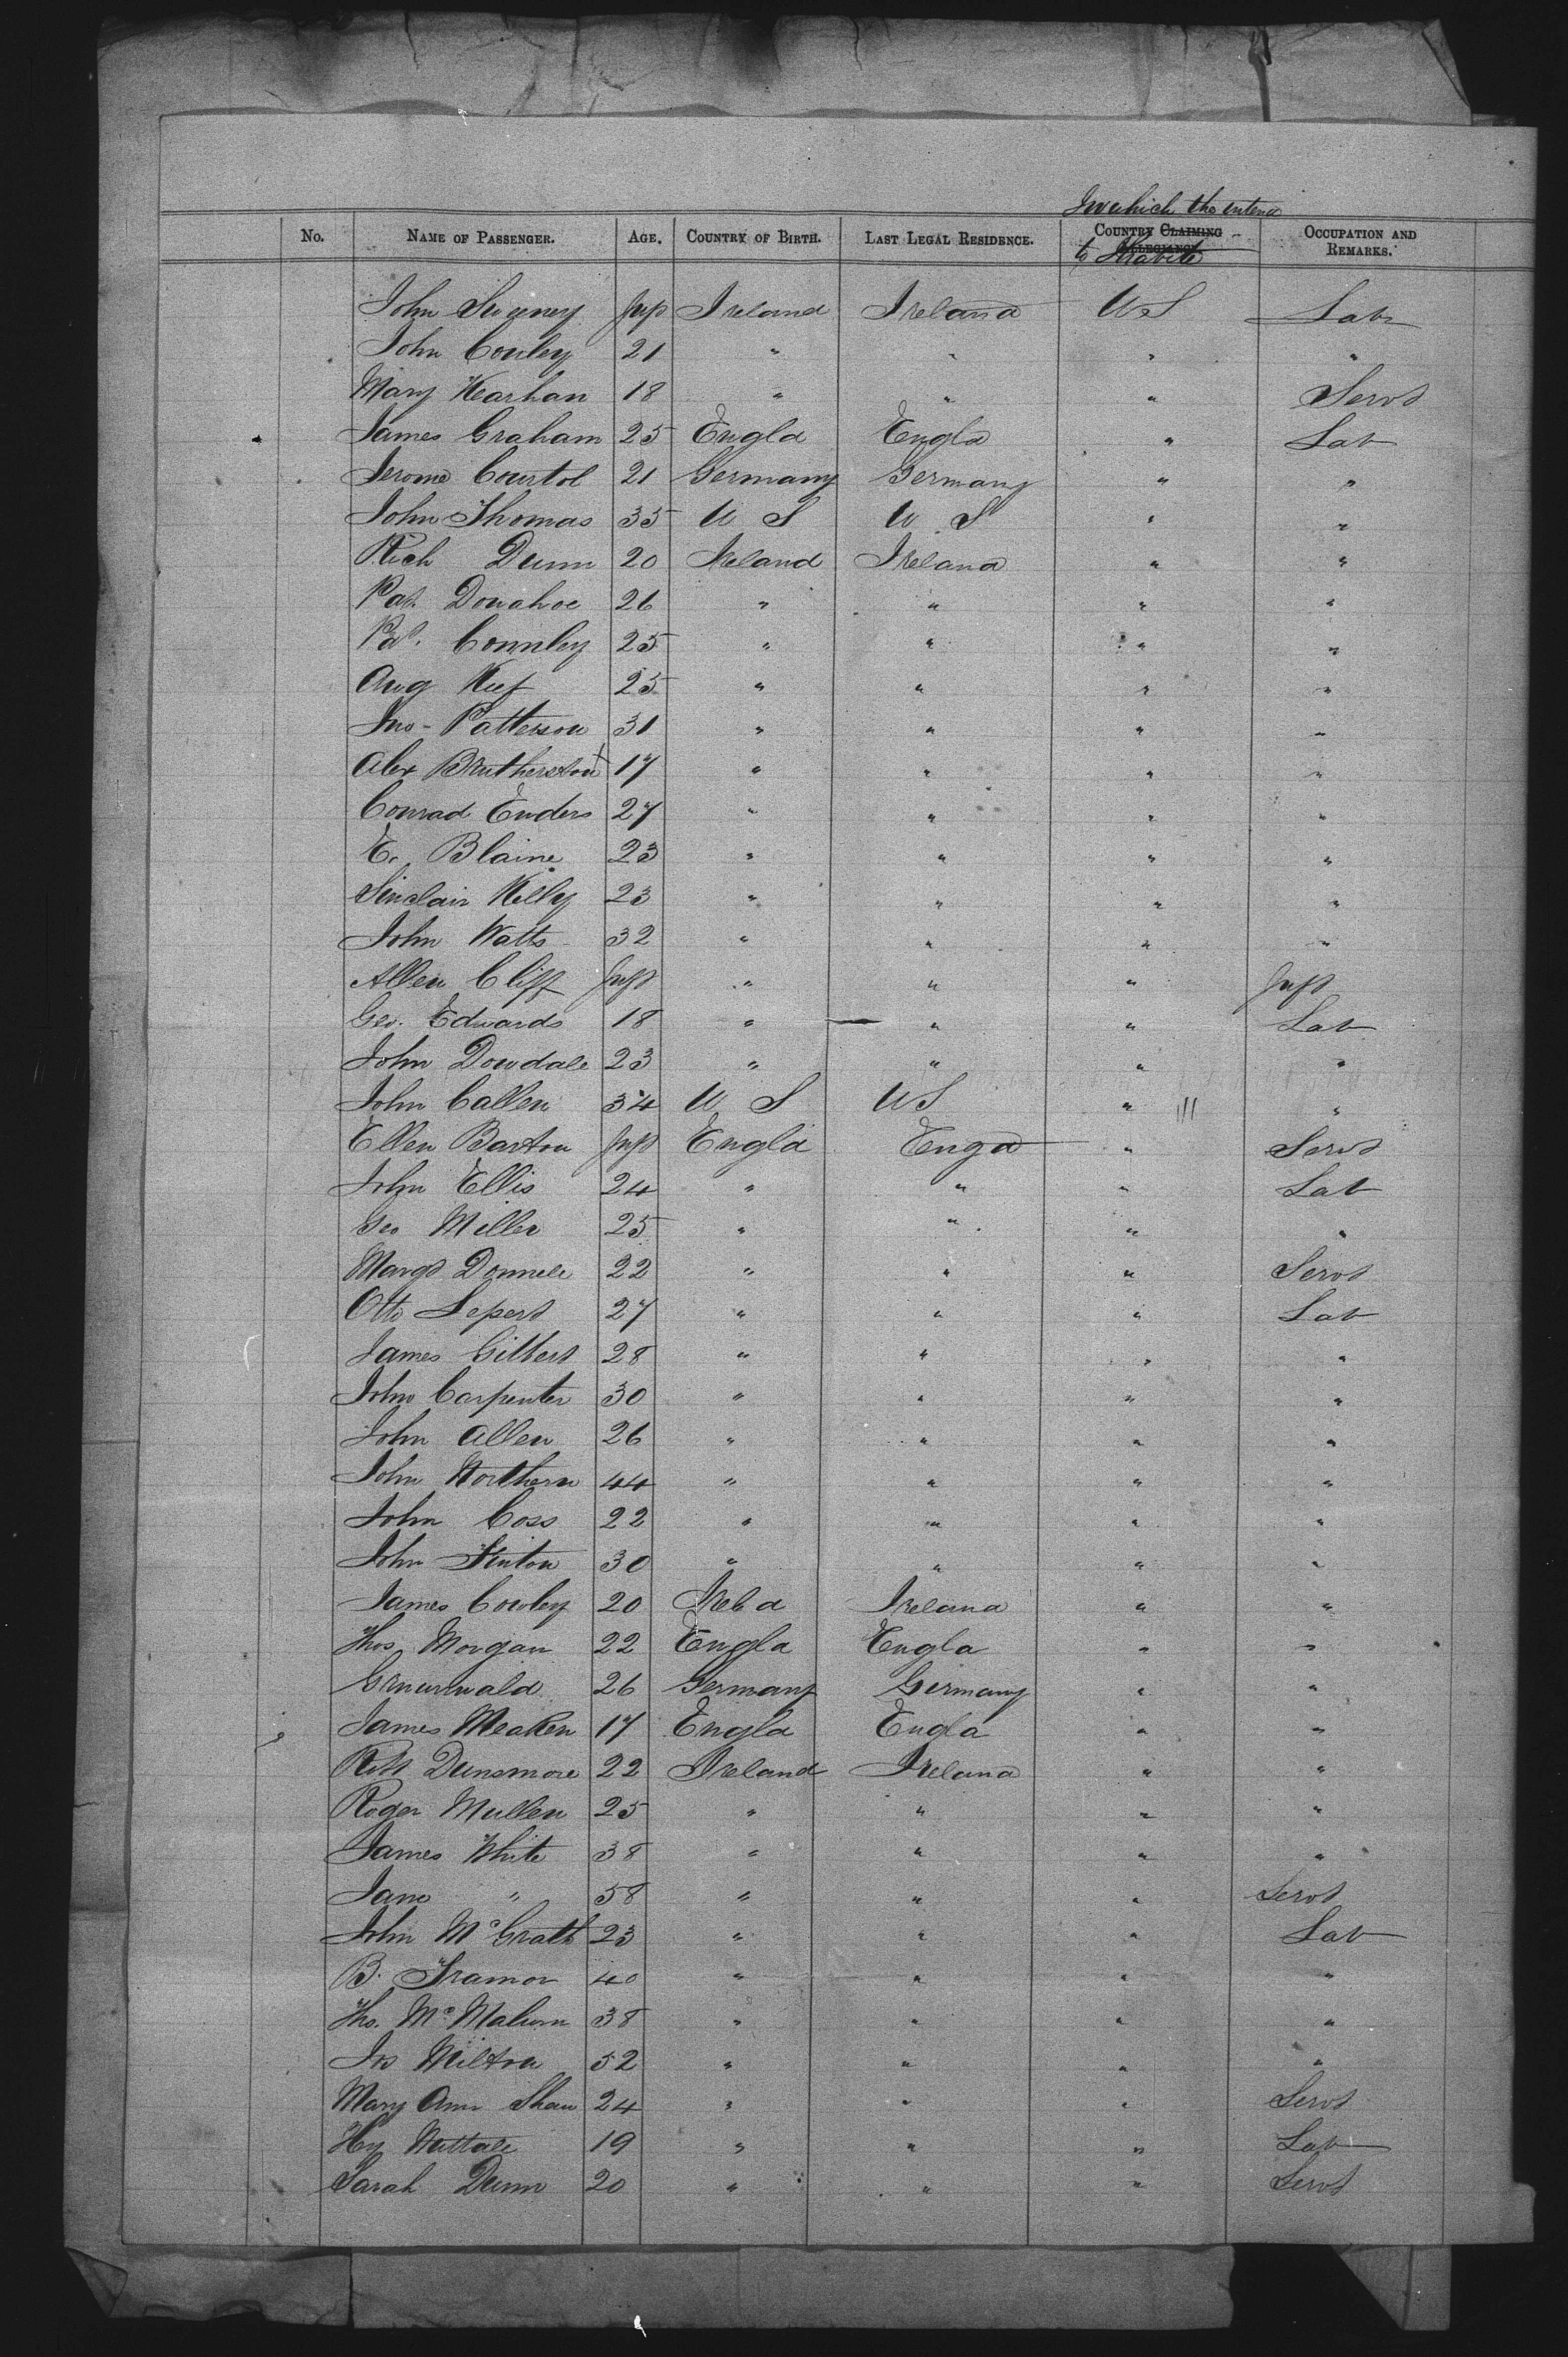 In which the intend
No. Name of Passenger. Age. Country of Birth. Last Legal Residence. Country Claiming Allegiance Occupation and Remarks.
to
John Sweeney Inft Ireland Ireland US Lab
John Conley 21 " " " "
Mary Kearhan 18 " " " Servt
James Graham 25 Engld Engld " Lab
Jerome Courtol 21 Germany Germany " "
John Thomas 35 U S U S " "
Rich Dunn 20 Ireland Ireland " "
Pat. Donahoe 26 " " " "
Pat. Connley 25 " " " "
Aug Keef 25 " " " "
Jno - Patterson 31 " " " "
Alex 17 " " " "
Conrad Enders 27 " " " "
E. Blaine 23 " " " "
Sinclair Kelly 23 " " " "
John Watts 32 " " " "
Allen Cliff Inft " " " Inft
Geo. Edwards 18 " " " Lab
John Dowdale 23 " " " "
John Callen 34 U S US " "
Ellen Barton Inft Engld Engd " Servt
John Ellis 24 " " " Lab
Geo Miller 25 " " " "
Margt Donnele 22 " " " Servt
Otto Lepert 27 " " " Lab
James Gilbert 28 " " " "
John Carpenter 30 " " " "
John Allen 26 " " " "
John Northern 44 " " " "
John Coss 22 " " " "
John Finton 30 " " " "
James Cowley 20 Ireld Ireland " "
Thos Morgan 22 Engld Engld " "
Gruenwald 26 Germany Germany " "
James Meaken 17 Engld Engld " "
Robt Dunsmore 22 Ireland Ireland " "
Roger Mullen 25 " " " "
James White 38 " " " "
Jane " 58 " " " Servt
John McGrath 23 " " " Lab
B. Tramor 40 " " " "
Tho. McMahon 38 " " " "
Jos Milton 52 " " " "
Mary Ann Shaw 24 " " " Servt
Hy Nuttale 19 " " " Lab
Sarah Dunn 20 " " " Servt